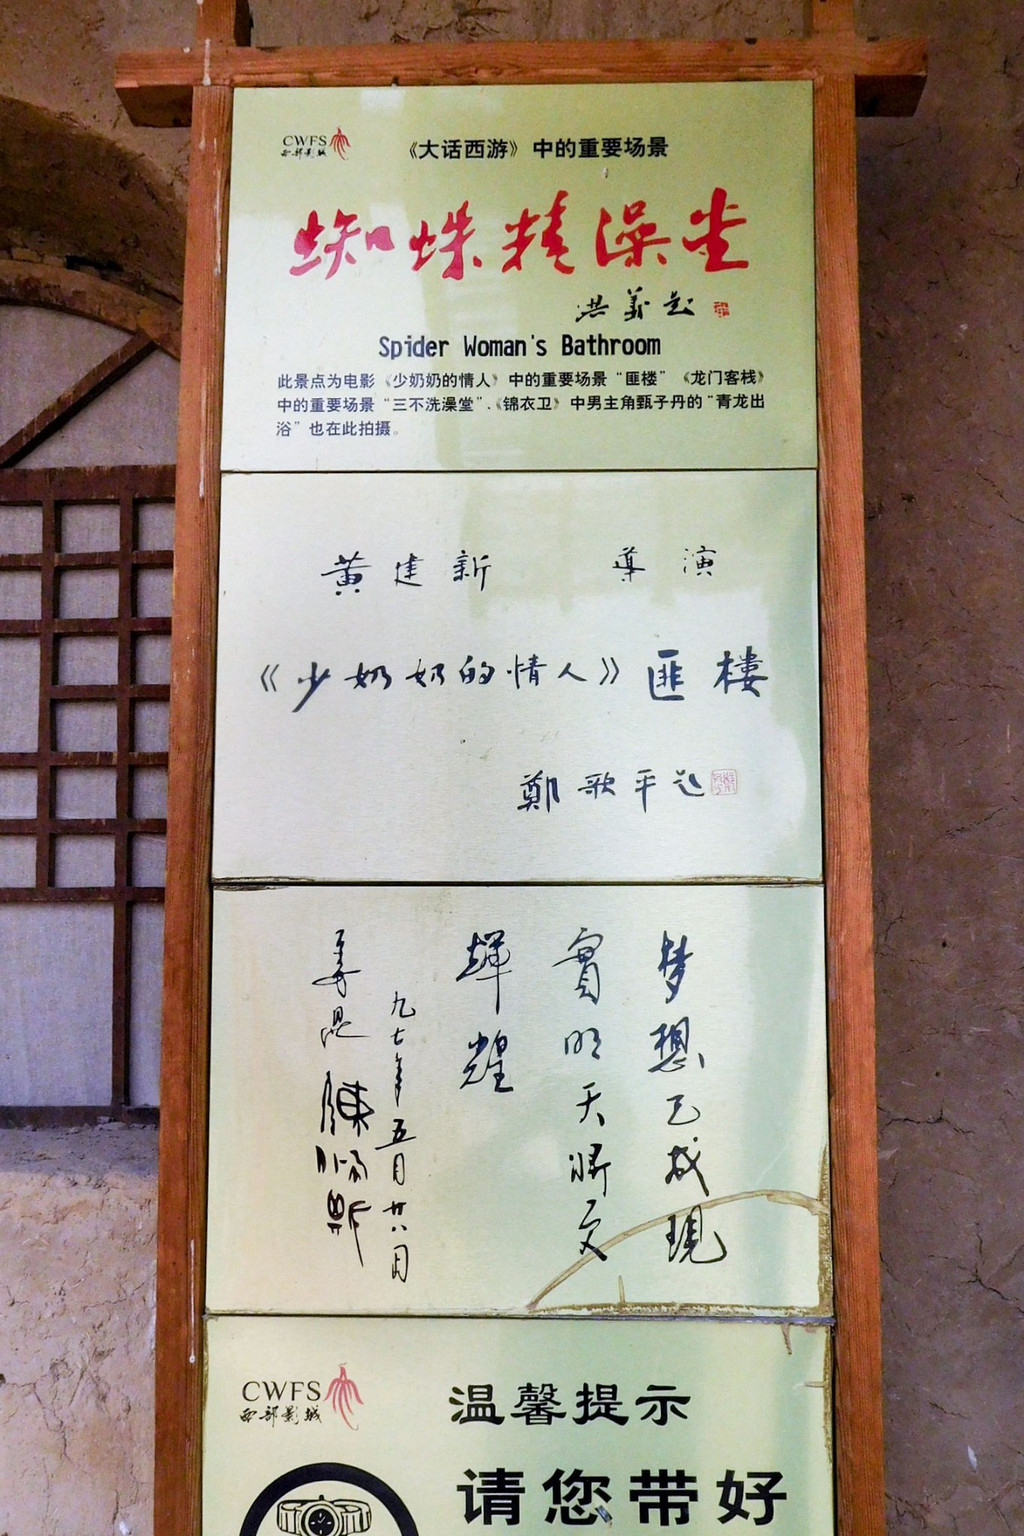 CWFS
西部影城
《大话西游》中的重要场景
蜘蛛精澡堂
洪义题
Spider Woman's Bathroom
此景点为电影《少奶奶的情人》中的重要场景“匪楼”《龙门客栈》
中的重要场景“三不洗澡堂”、《锦衣卫》中男主角甄子丹的“青龙出
浴”也在此拍摄。
黄建新 導演
《少奶奶的情人》匪樓
鄭歌平题
梦想已成現
實明天將更
輝煌
九七年五月廿八日
姜昆
CWFS
西部影城
温馨提示
请您带好